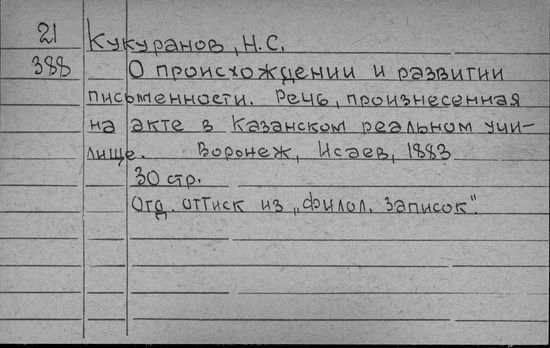 21 Кукуранов, Н.С.
388 О происхождении и развитии
письменности. Речь, произнесенная
на акте в Казанском реальном учи-
лище. Воронеж, Исаев, 1883
30 стр.
Отд. оттиск из „Филол. записок".